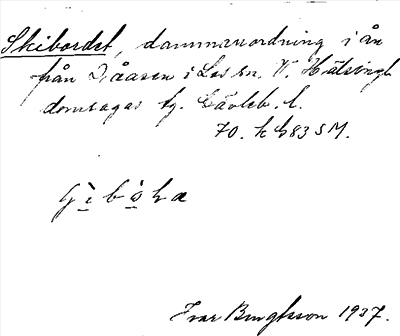 Skibordet, dammanordning i ån
från Tåasen i Los sn. V. Hälsingl
domsagas tg. Gävleb. l.
70. k 683 S M.
Ivar Bengtsson 1937.